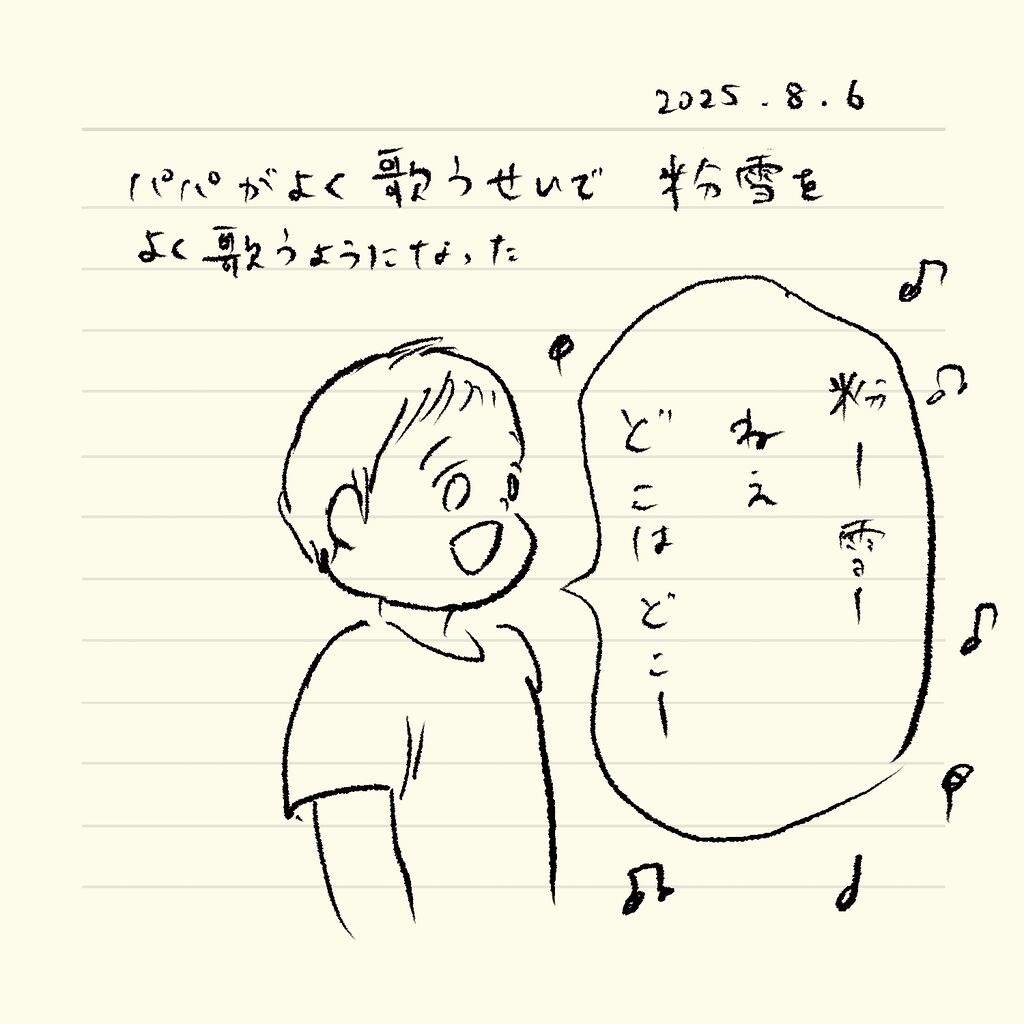 2025.8.6
パパがよく歌うせいで 粉雪を
よく歌うようになった
粉ー雪ー
ねえ
どこはどこー